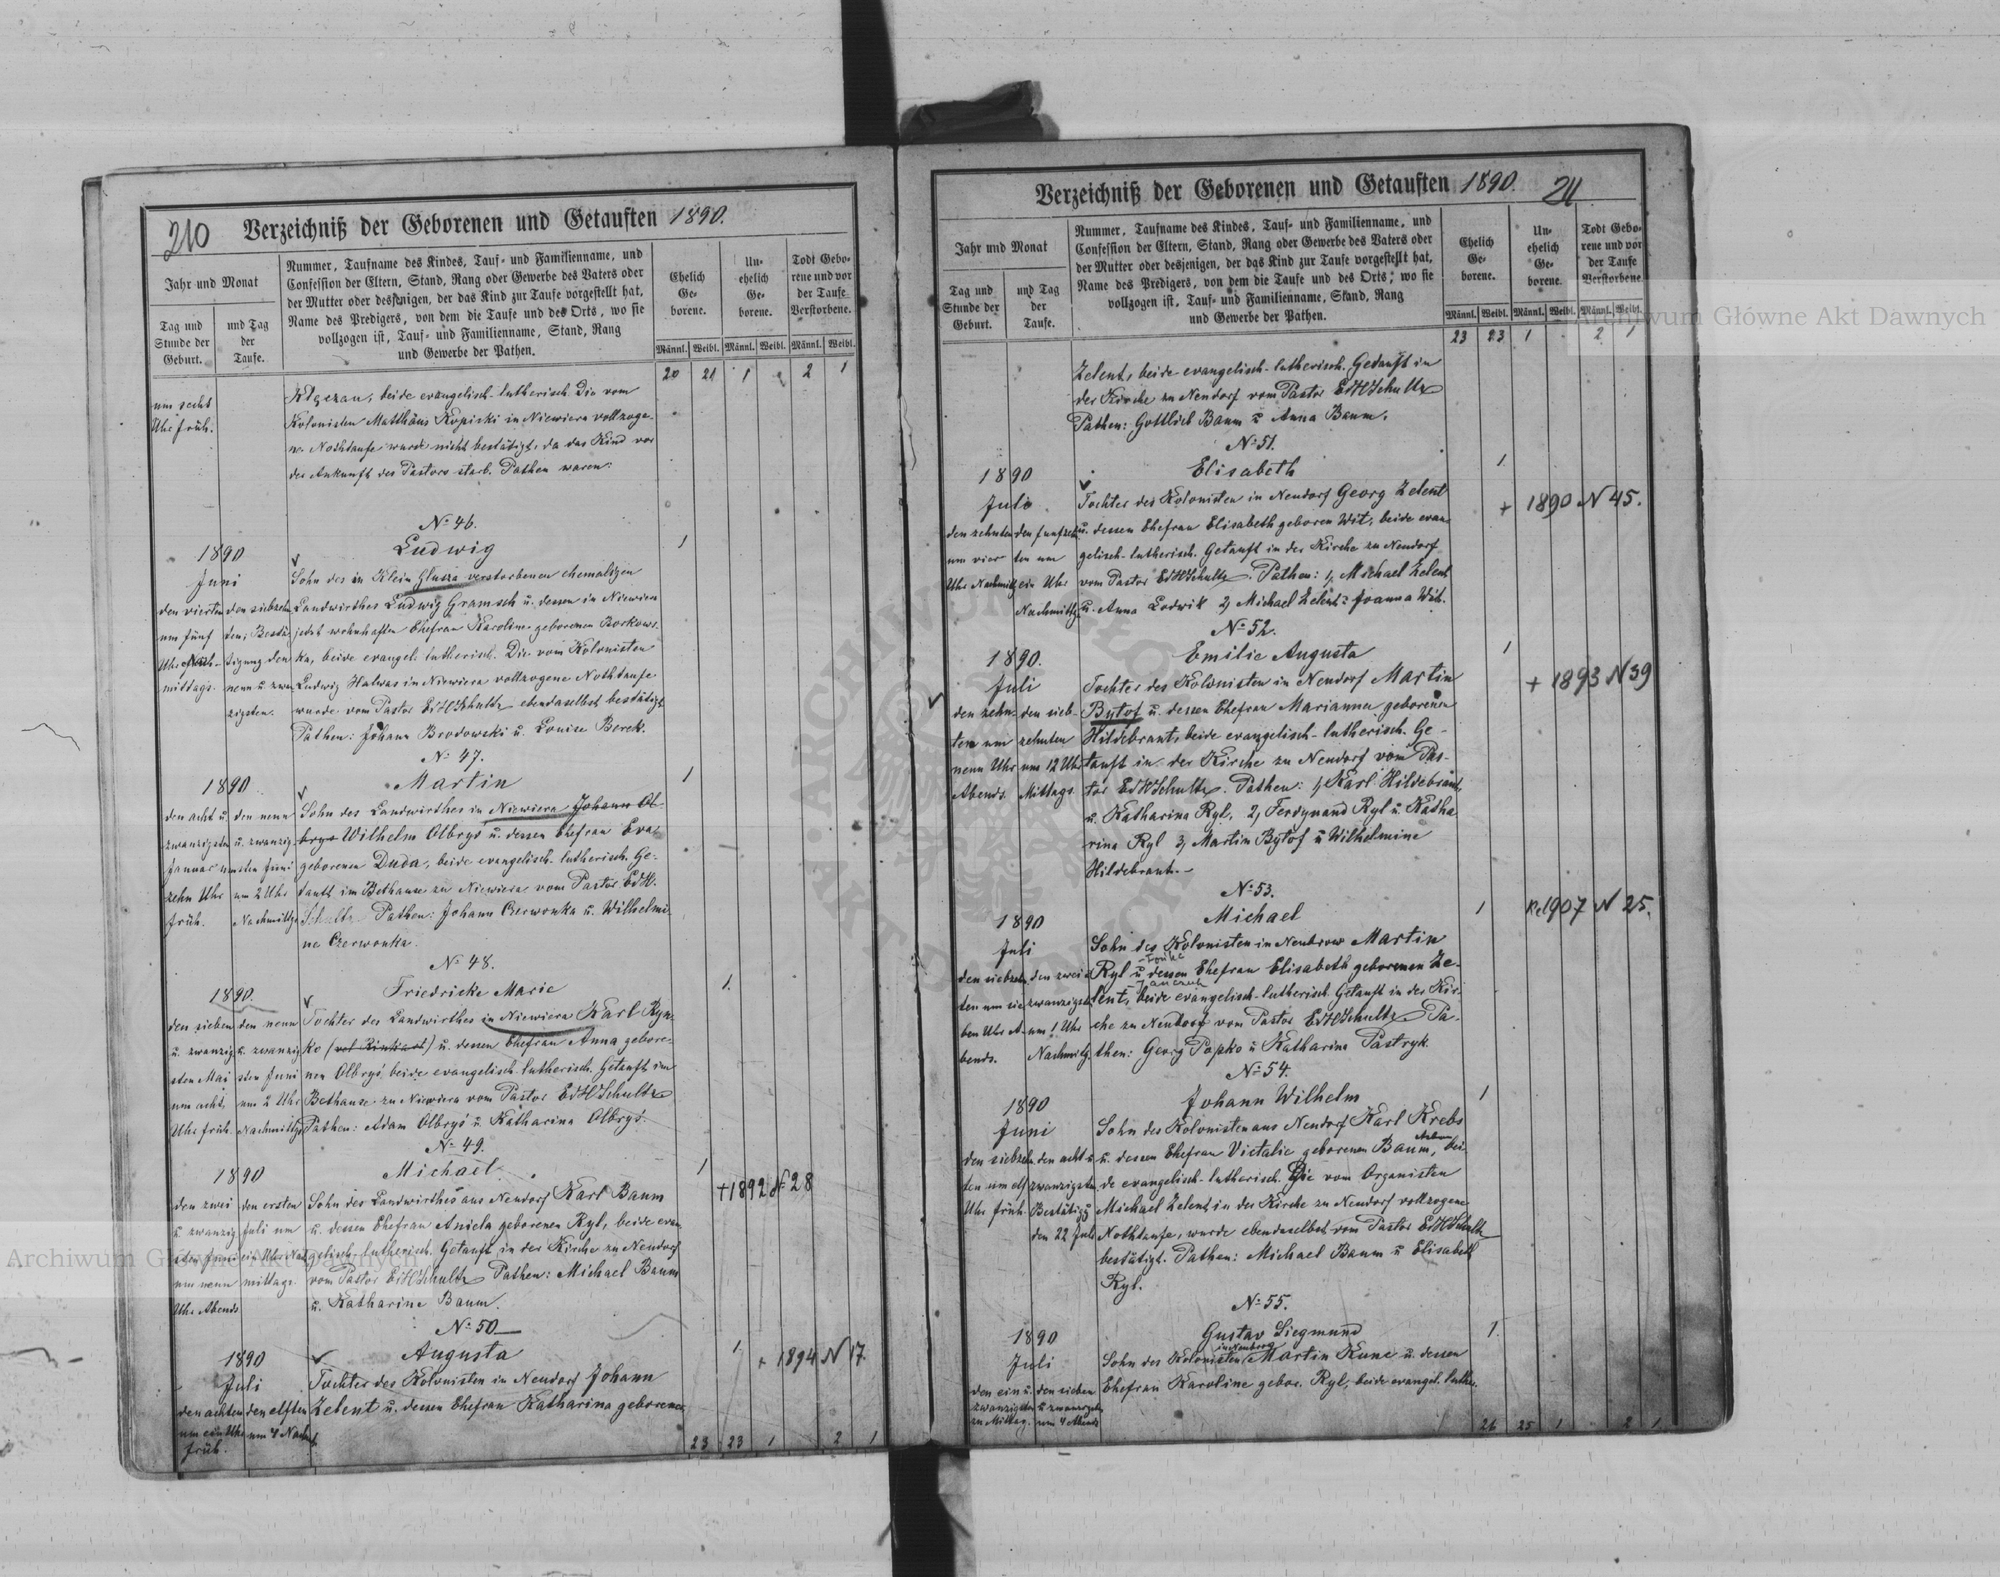 210
Verzeichniß der Geborenen und Getauften 1890.
Jahr und Monat
Tag und
Stunde der
Geburt.
und Tag
der
Taufe.
Nummer, Taufname des Kindes, Tauf- und Familienname, und
Confession der Eltern, Stand, Rang oder Gewerbe des Vaters oder
der Mutter oder desjenigen, der das Kind zur Taufe vorgestellt hat,
Name des Predigers, von dem die Taufe und des Orts, wo sie
vollzogen ist, Tauf- und Familienname, Stand, Rang
und Gewerbe der Pathen.
Ehelich
Ge-
borene.
Un-
ehelich
Ge-
borene.
Todt Gebo-
rene und vor
der Taufe
Verstorbene.
Männl. Weibl. Männl. Weibl. Männl. Weibl.
20 21 1 2 1
um sechs
Uhr früh.
beide evangelisch-lutherisch. Die vom
Kolonisten Matthäus Kopiski in Niewiera vollzoge-
ne Nothtaufe wurde nicht bestätigt, da das Kind vor
der Ankunft des Pastors starb. Pathen waren:
No 46.
1890 Ludwig 1
Juni
den vierten
um fünf
Uhr Nach-
mittags.
den siebzehn
ten; Bestä-
tigung den
neun u. zwan
zigsten.
Sohn des in Klein Glusza verstorbenen ehemaligen
Landwirthes Ludwig Gramsch u. dessen in Niewiera
jetzt wohnhaften Ehefrau Karoline geborenen Borkows-
ka, beide evangel. lutherisch. Die vom Kolonisten
Ludwig Halwas in Niewiera vollzogene Nothtaufe
wurde vom Pastor EdHSchultz ebendaselbst bestätigt
Pathen: Johann Brodowski u. Louise Berek.
No 47.
1890 Martin 1
den acht u.
zwanzigsten
Januar um
zehn Uhr
früh.
den neun
u. zwanzig-
sten Juni
um 2 Uhr
Nachmittgs
Sohn des Landwirthes in Niewiera Johann Ol-
brys Wilhelm Olbrys u. dessen Ehefrau Eva
geborenen Duda, beide evangelisch-lutherisch. Ge-
tauft im Bethause zu Niewiera vom Pastor EdH.
Schultz Pathen: Johann Czerwonka u. Wilhelmi-
ne Czerwonka.
No 48.
1890. Friedricke Marie 1.
den sieben
u. zwanzig
sten Mai
um acht
Uhr früh.
den neun
u. zwanzig
sten Juni
um 2 Uhr
Nachmittgs
Tochter des Landwirthes in Niewiera Karl Ryn-
ko (vel Rinkart) u. dessen Ehefrau Anna gebore-
nen Olbryś, beide evangelisch lutherisch. Getauft im
Bethause zu Niewiera vom Pastor EdHSchultz
Pathen: Adam Olbryś u. Katharina Olbryś.
No 49.
1890 Michael. 1
+ 1892 N 28
den zwei
u. zwanzig
sten Juni
um neun
Uhr Abends
den ersten
Juli um
ein Uhr Nach
mittags.
Sohn des Landwirthes aus Neudorf Karl Baum
u. dessen Ehefrau Aniela geborenen Ryl, beide evan-
gelisch-lutherisch. Getauft in der Kirche zu Neudorf
vom Pastor EdHSchultz Pathen: Michael Baum
u. Katharine Baum.
No 50
1890 Augusta 1
+ 1894 N 17
Juli
den achten
um ein Uhr
früh.
den elften
um 4 Nachmt
Tochter des Kolonisten in Neudorf Johann
Zelent u. dessen Ehefrau Katharina geborenen
23 23 1 2 1
Verzeichniß der Geborenen und Getauften 1890. 211
Jahr und Monat
Tag und
Stunde der
Geburt.
und Tag
der
Taufe.
Nummer, Taufname des Kindes, Tauf- und Familienname, und
Confession der Eltern, Stand, Rang oder Gewerbe des Vaters oder
der Mutter oder desjenigen, der das Kind zur Taufe vorgestellt hat,
Name des Predigers, von dem die Taufe und des Orts, wo sie
vollzogen ist, Tauf- und Familienname, Stand, Rang
und Gewerbe der Pathen.
Ehelich
Ge-
borene.
Un-
ehelich
Ge-
borene.
Todt Gebo-
rene und vor
der Taufe
Verstorbene.
Männl. Weibl. Männl. Weibl. Männl. Weibl.
23 23 1 2 1
Zelent, beide evangelisch-lutherisch. Getauft in
der Kirche zu Neudorf vom Pastor EdHSchultz
Pathen: Gottlieb Baum u. Anna Baum.
No 51.
1890 Elisabeth 1
+ 1890 N 45.
Juli
den zehnten
um vier
Uhr Nachmittg
den funfzehn
ten um
ein Uhr
Nachmittgs
Tochter des Kolonisten in Neudorf Georg Zelent
u. dessen Ehefrau Elisabeth geboren Wit, beide evan-
gelisch-lutherisch. Getauft in der Kirche zu Neudorf
vom Pastor EdHSchultz. Pathen: 1, Michael Zelent
u. Anna Ludwik 2, Michael Zelent u. Joanna Wit.
No 52.
1890. Emilie Augusta 1
+ 1893 N 39
Juli
den zehn-
ten um
neun Uhr
Abends.
den sieb-
zehnten
um 12 Uhr
Mittags.
Tochter des Kolonisten in Neudorf Martin
Bytof u. dessen Ehefrau Marianna geborenen
Hildebrant, beide evangelisch-lutherisch. Ge-
tauft in der Kirche zu Neudorf vom Pas-
tor EdHSchultz. Pathen: 1, Karl Hildebrant
u. Katharina Ryl, 2, Ferdynand Ryl u. Katha
rina Ryl 3, Martin Bytof u. Wilhelmine
Hildebrant.
No 53.
1890 Michael 1
1907 N 25.
Juli
den siebzehn
ten um sie
ben Uhr A-
bends.
den zwei u
zwanzigsten
um 1 Uhr
Nachmittg.
Sohn des Kolonisten in Neubrow Martin
Ryl u. dessen Ehefrau Elisabeth geborenen Ze-
lent, beide evangelisch-lutherisch. Getauft in der Kir-
che zu Neudorf vom Pastor EdHSchultz Pa-
then: Georg Popko u. Katharina Pastryk.
No 54.
1890 Johann Wilhelm 1
Juni
den siebzehn
ten um elf
Uhr früh.
den acht u
zwanzigsten
Bestätigg
den 22 Juli
Sohn des Kolonisten aus Neudorf Karl Krebs
u. dessen Ehefrau Victalie geborenen Baum, bei-
de evangelisch-lutherisch. Die vom Organisten
Michael Zelent in der Kirche zu Neudorf vollzogene
Nothtaufe, wurde ebendaselbst vom Pastor EdHSchultz
bestätigt. Pathen: Michael Baum u. Elisabeth
Ryl.
No 55.
1890 Gustav Siegmund 1.
Juli
den ein u.
zwanzigsten
zu Mittag.
den sieben
u zwanzigsten
um 4 Abends
in Neuberg
Sohn des Kolonisten Martin Kunc u. dessen
Ehefrau Karoline gebor. Ryl, beide evangel. luther.
26 25 1 2 1
Archiwum Główne Akt Dawnych
Archiwum Główne Akt Dawnych